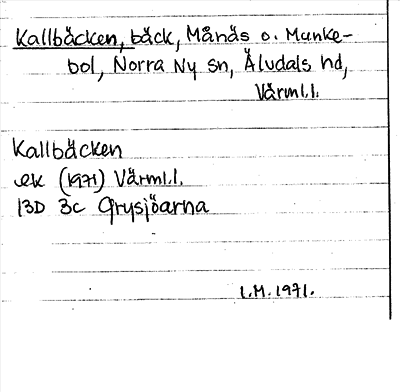 Kallbäcken, bäck, Månäs o. Munke-
bol, Norra Ny sn, Älvdals hd,
Värml.l.
Kallbäcken
ek (1971) Värml.l.
13D 3c Grysjöarna
I.M. 1971.